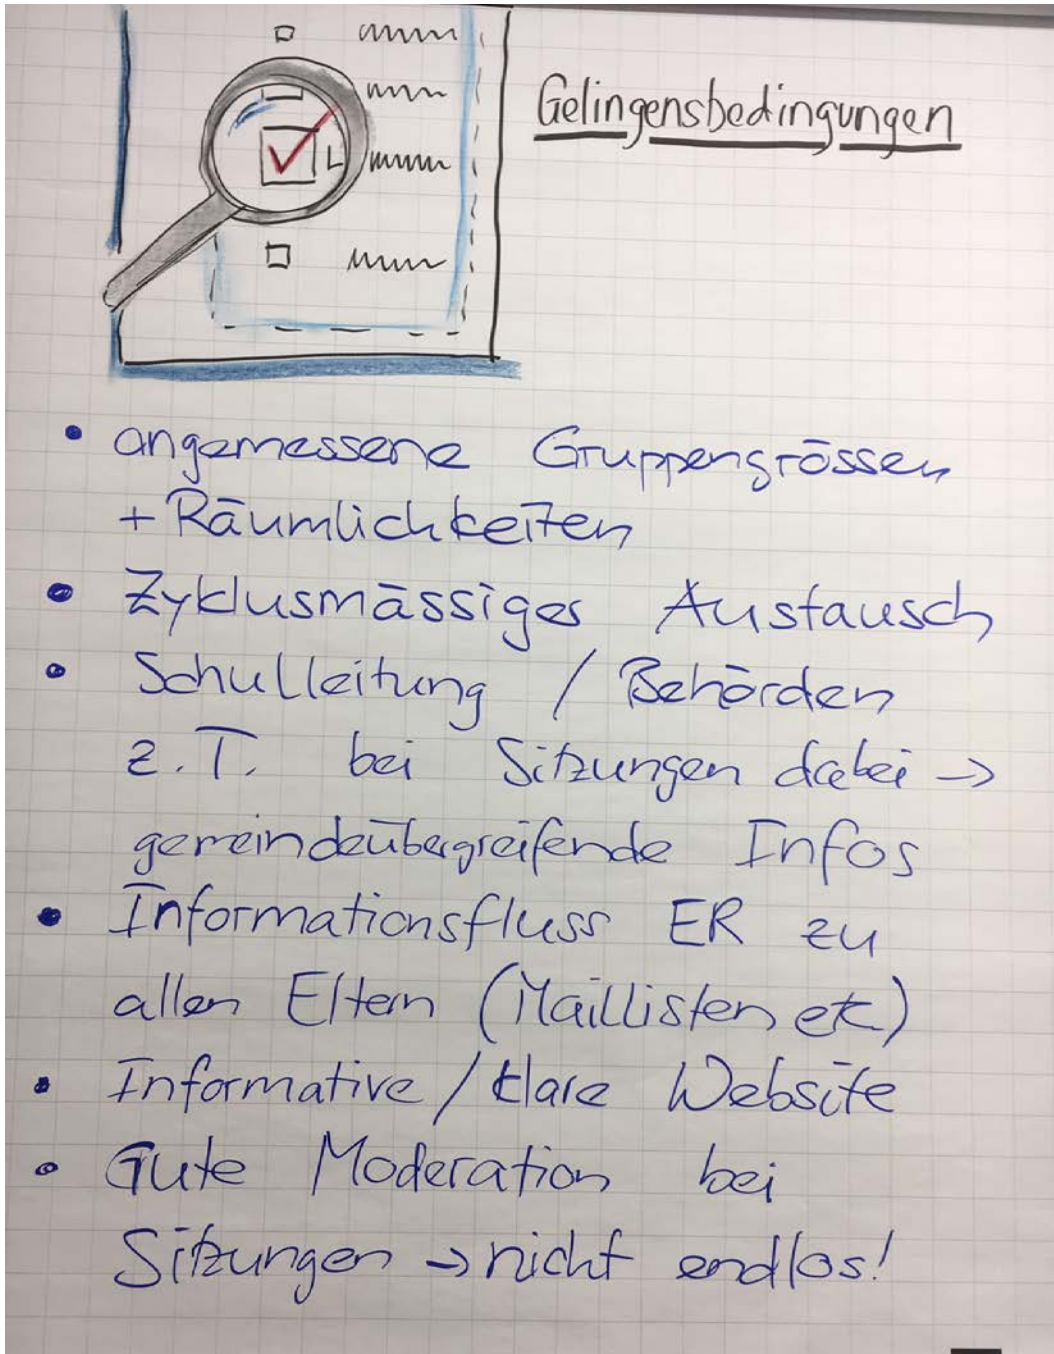 Gelingensbedingungen
• angemessene Gruppengrössen
+ Räumlichkeiten
• Zyklusmässiges Austausch
• Schulleitung / Behörden
z.T. bei Sitzungen dabei →
gemeindeübergreifende Infos
• Informationsfluss ER zu
allen Eltern (Maillisten etc)
• Informative / klare Website
• Gute Moderation bei
Sitzungen → nicht endlos!